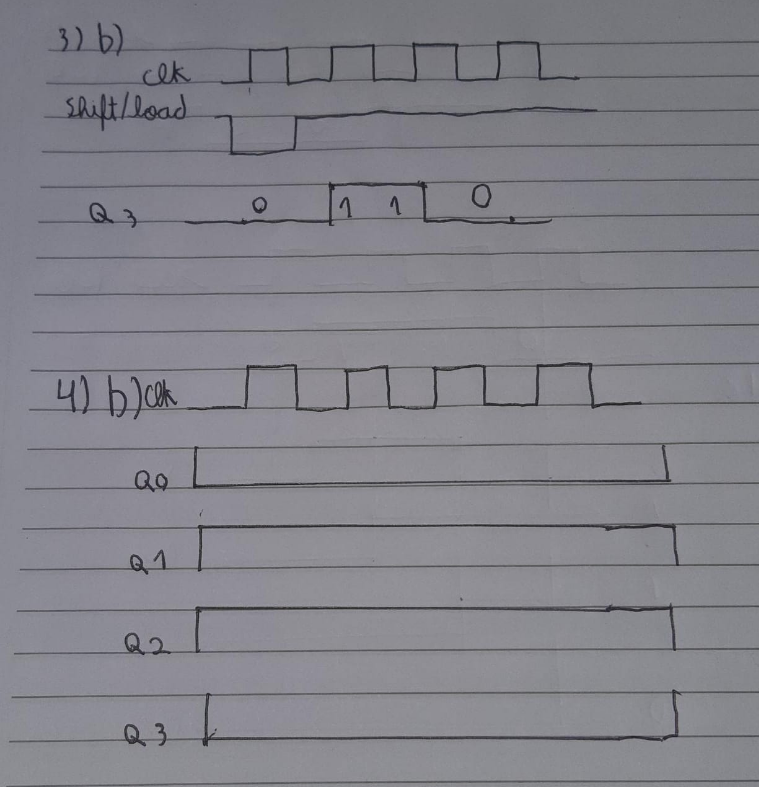 3) b)
clk
Shift/load
Q3 0 1 1 0
4) b) clk
Q0
Q1
Q2
Q3